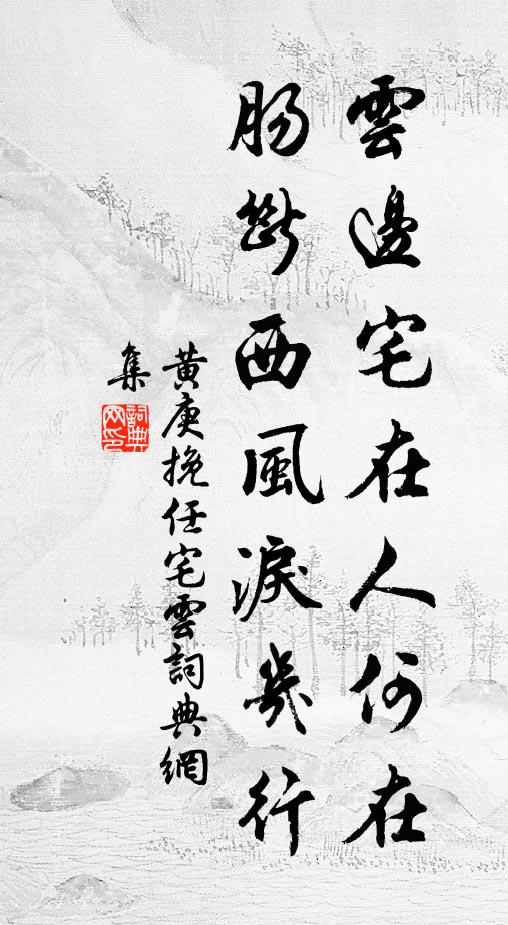 雲邊宅在人何在
腸斷西風淚幾行
黃庚挽任宅雲詞典網
集
詞典
网印